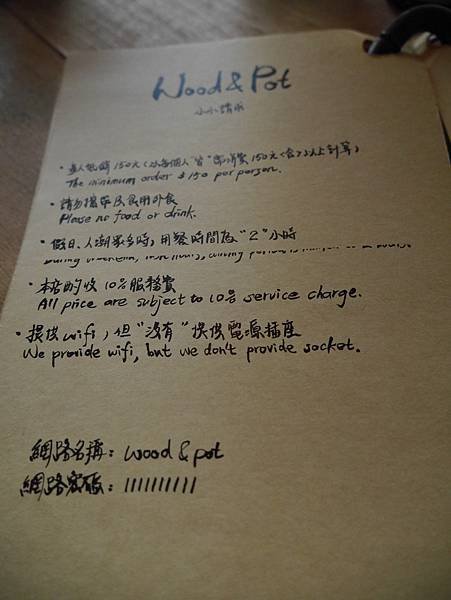 Wood & Pot
小小請求
· 每人低銷150元(為每個人"皆"需消費150元<含>以上計算)
The minimum order $150 per person.
· 請勿攜帶及食用外食
Please no food or drink.
· 假日、人潮眾多時,用餐時間為"2"小時
During weekend,
· 本店酌收10%服務費
All price are subject to 10% service charge.
· 提供wifi,但"沒有"提供電源插座
We provide wifi, but we don't provide socket.
網路名稱:wood & pot
網路密碼:1111111111